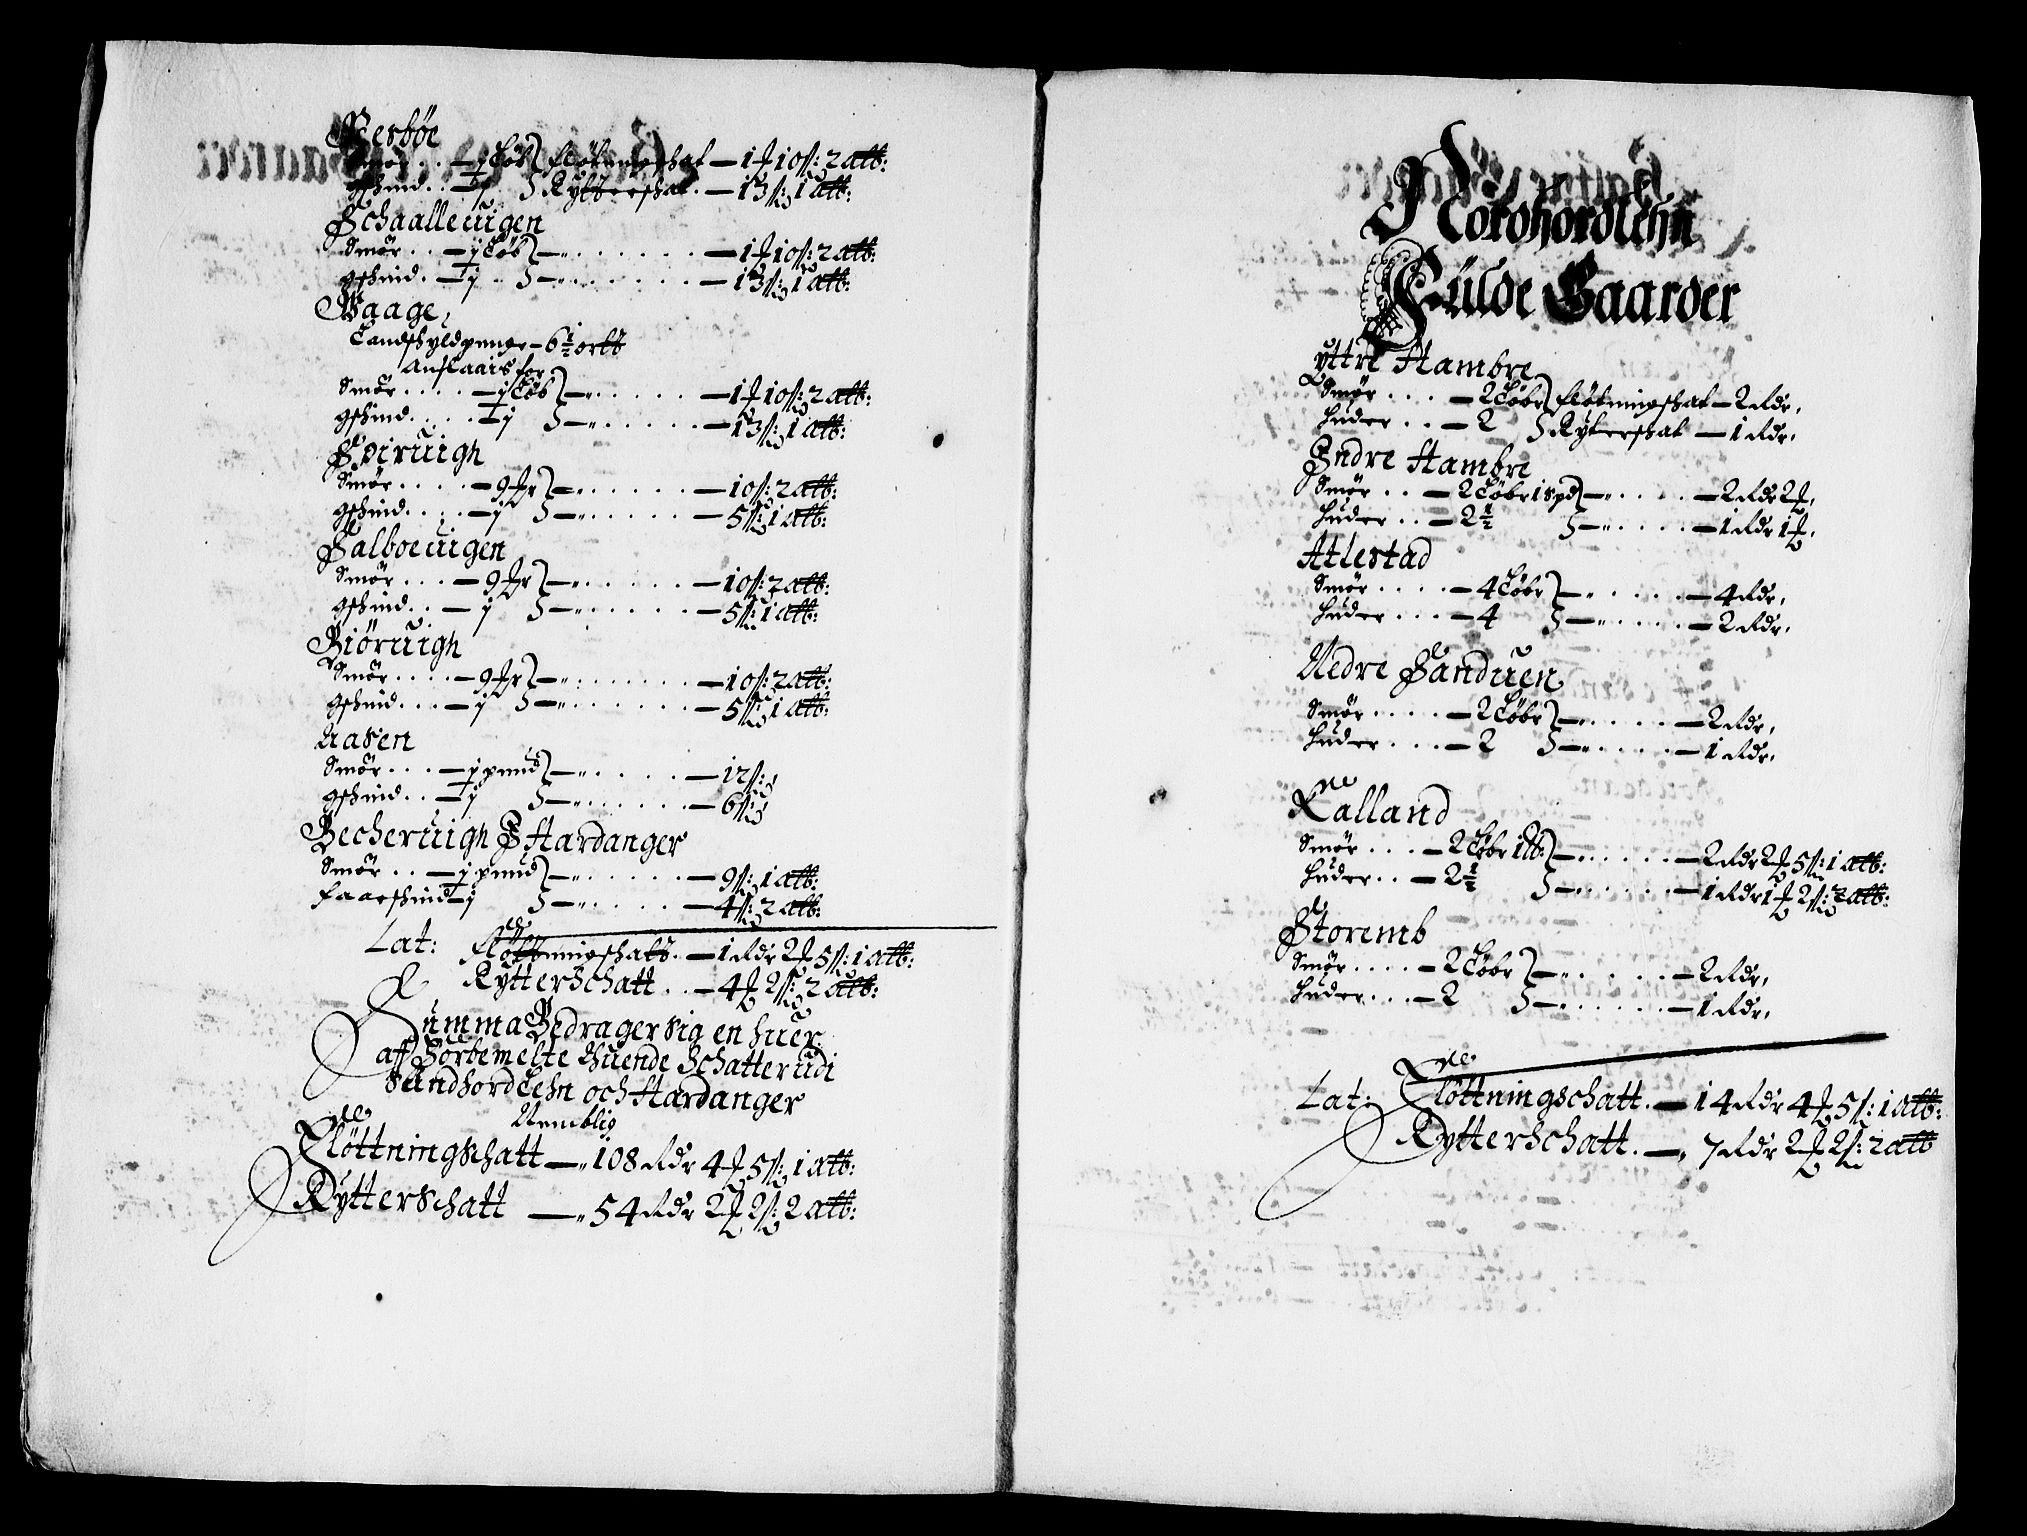 Besbøe
Smør . . — j Løb } fløtningschat — 1 ₰ 10 ß: 2 alb:
gschind . . — j } Rytterschat . — 13 ß: 1 alb:
Schaalleuigen
Smør . . — j Løb } — „ . . . . . . — 1 ₰ 10 ß: 2 alb:
gschind . — j . . } — „ . . . . . . — 13 ß: 1 alb:
Waage,
Landschyldpenge — 6 1/2 ortt
Anslaais for
Smør . . . . — j Løb } — „ . . . . . — 1 ₰ 10 ß: 2 alb:
gschind . . . . — j } — „ . . . . . — 13 ß: 1 alb:
Speruigh
Smør . . . . — 9 ₰r } — „ . . . . . — 10 ß: 2 alb:
gschind . . . . — j } — „ . . . . . — 5 ß: 1 alb:
Salboeuigen
Smør . . . — 9 ₰r } — „ . . . . . — 10 ß: 2 alb:
gschind . . — j } — „ . . . . . — 5 ß: 1 alb:
Biøruigh
Smør . . . . — 9 ₰r } — „ . . . . . — 10 ß: 2 alb:
gschind . . . — j } — „ . . . . . — 5 ß: 1 alb:
Aasen
Smør . . . — j pund } — „ . . . . — 12 ß:
gschind . . — j } — „ . . . . . — 6 ß
Becheruigh J Hardanger
Smør . . — j pund } — „ . . . . . — 9 ß: 1 alb:
faarschind — j } — „ . . . . — 4 ß: 2 alb:
Lat: fløttningschatt . — 1 Rdr 2 ₰ 5 ß: 1 alb:
Rytterschatt . . — 4 ₰ 2 ß: 2 alb:
Summa Bedrager sig en huer
aff Forbemelte thuende Schatter udi
Sundhordlehn och Hardanger
Nemblig
Fløttningschatt — „ 108 Rdr 4 ₰ 5 ß: 1 alb:
Rytterschatt — „ 54 Rdr 2 ₰ 2 ß: 2 alb:
Nordhordlehn
Fulde Gaarder
Yttre Hambre
Smør . . . . — 2 Løbr } fløtningschat — 2 Rdr,
huder . . — 2 } Ryterschat — 1 Rdr,
Indre Hambre
Smør . . — 2 Løbr 1 spd } — „ . . . . — 2 Rdr 2 ₰,
huder . . — 2 1/2 } — „ . . . . — 1 Rdr 1 ₰,
Atlestad
Smør . . . . — 4 Løbr } — „ . . . . . — 4 Rdr,
huder . . . — 4 } — „ . . . . — 2 Rdr,
Nedre Sanduen
Smør . . . . — 2 Løbr } — „ . . . . . — 2 Rdr,
huder . . . — 2 } — „ . . . . — 1 Rdr,
Kalland
Smør . . . — 2 Løbr 1 lb: } — „ . . . . . — 2 Rdr 2 ₰ 5 ß: 1 alb:
huder . . — 2 1/2 } — „ . . . . . — 1 Rdr 1 ₰ 2 ß: 2 alb:
Storemb
Smør . . . . — 2 Løbr } — „ . . . . . — 2 Rdr,
huder . . . — 2 } — . . . . . — 1 Rdr,
Lat: Fløttningschatt . — 14 Rdr 4 ₰ 5 ß: 1 alb:
Rytterschatt . — „ 7 Rdr 2 ₰ 2 ß: 2 alb